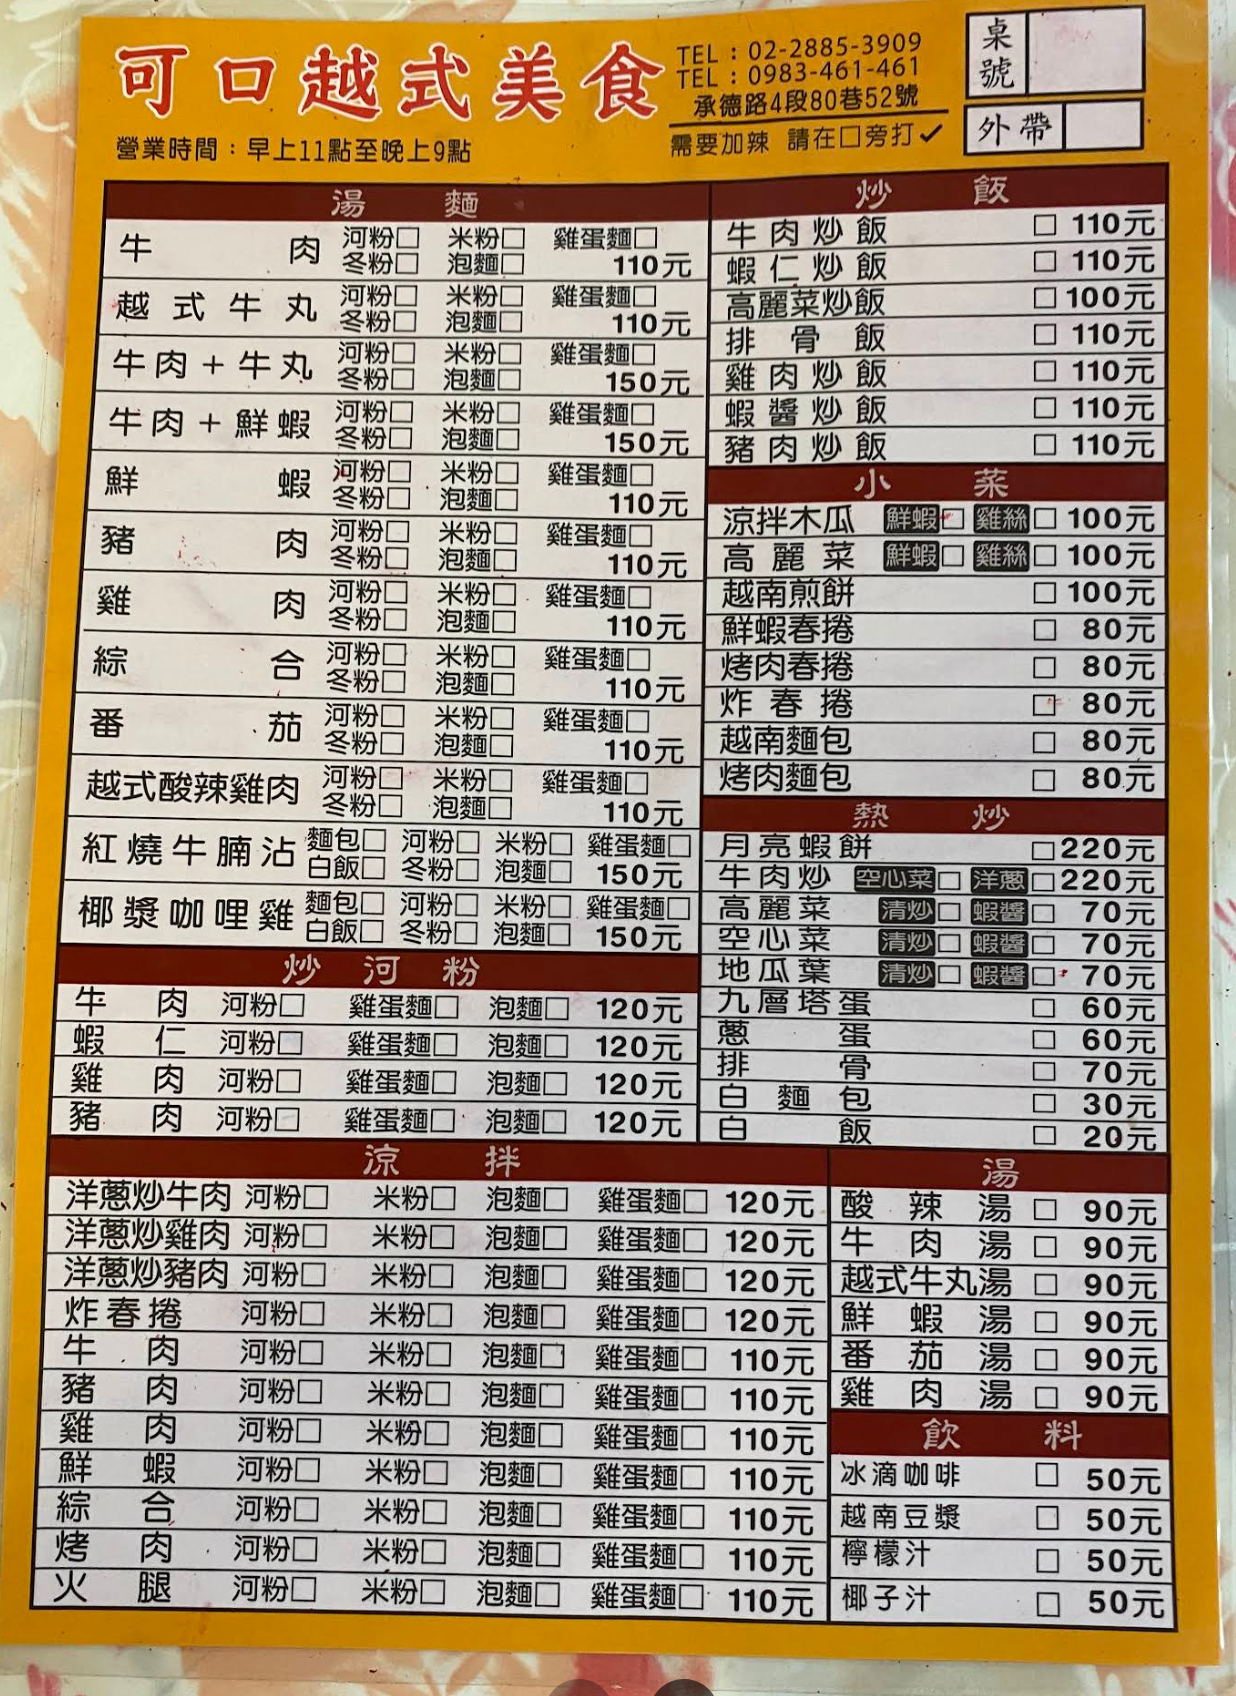 可口越式美食
TEL：02-2885-3909
TEL：0983-461-461
承德路4段80巷52號
營業時間：早上11點至晚上9點
需要加辣 請在□旁打✓
桌號
外帶
湯麵
牛肉 河粉□ 米粉□ 雞蛋麵□
冬粉□ 泡麵□ 110元
越式牛丸 河粉□ 米粉□ 雞蛋麵□
冬粉□ 泡麵□ 110元
牛肉+牛丸 河粉□ 米粉□ 雞蛋麵□
冬粉□ 泡麵□ 150元
牛肉+鮮蝦 河粉□ 米粉□ 雞蛋麵□
冬粉□ 泡麵□ 150元
鮮蝦 河粉□ 米粉□ 雞蛋麵□
冬粉□ 泡麵□ 110元
豬肉 河粉□ 米粉□ 雞蛋麵□
冬粉□ 泡麵□ 110元
雞肉 河粉□ 米粉□ 雞蛋麵□
冬粉□ 泡麵□ 110元
綜合 河粉□ 米粉□ 雞蛋麵□
冬粉□ 泡麵□ 110元
番茄 河粉□ 米粉□ 雞蛋麵□
冬粉□ 泡麵□ 110元
越式酸辣雞肉 河粉□ 米粉□ 雞蛋麵□
冬粉□ 泡麵□ 110元
紅燒牛腩沾 麵包□ 河粉□ 米粉□ 雞蛋麵□
白飯□ 冬粉□ 泡麵□ 150元
椰漿咖哩雞 麵包□ 河粉□ 米粉□ 雞蛋麵□
白飯□ 冬粉□ 泡麵□ 150元
炒河粉
牛肉 河粉□ 雞蛋麵□ 泡麵□ 120元
蝦仁 河粉□ 雞蛋麵□ 泡麵□ 120元
雞肉 河粉□ 雞蛋麵□ 泡麵□ 120元
豬肉 河粉□ 雞蛋麵□ 泡麵□ 120元
炒飯
牛肉炒飯 □ 110元
蝦仁炒飯 □ 110元
高麗菜炒飯 □ 100元
排骨飯 □ 110元
雞肉炒飯 □ 110元
蝦醬炒飯 □ 110元
豬肉炒飯 □ 110元
小菜
涼拌木瓜 鮮蝦□ 雞絲□ 100元
高麗菜 鮮蝦□ 雞絲□ 100元
越南煎餅 □ 100元
鮮蝦春捲 □ 80元
烤肉春捲 □ 80元
炸春捲 □ 80元
越南麵包 □ 80元
烤肉麵包 □ 80元
熱炒
月亮蝦餅 □ 220元
牛肉炒 空心菜□ 洋蔥□ 220元
高麗菜 清炒□ 蝦醬□ 70元
空心菜 清炒□ 蝦醬□ 70元
地瓜葉 清炒□ 蝦醬□ 70元
九層塔蛋 □ 60元
蔥蛋 □ 60元
排骨 □ 70元
白麵包 □ 30元
白飯 □ 20元
涼拌
洋蔥炒牛肉 河粉□ 米粉□ 泡麵□ 雞蛋麵□ 120元
洋蔥炒雞肉 河粉□ 米粉□ 泡麵□ 雞蛋麵□ 120元
洋蔥炒豬肉 河粉□ 米粉□ 泡麵□ 雞蛋麵□ 120元
炸春捲 河粉□ 米粉□ 泡麵□ 雞蛋麵□ 120元
牛肉 河粉□ 米粉□ 泡麵□ 雞蛋麵□ 110元
豬肉 河粉□ 米粉□ 泡麵□ 雞蛋麵□ 110元
雞肉 河粉□ 米粉□ 泡麵□ 雞蛋麵□ 110元
鮮蝦 河粉□ 米粉□ 泡麵□ 雞蛋麵□ 110元
綜合 河粉□ 米粉□ 泡麵□ 雞蛋麵□ 110元
烤肉 河粉□ 米粉□ 泡麵□ 雞蛋麵□ 110元
火腿 河粉□ 米粉□ 泡麵□ 雞蛋麵□ 110元
湯
酸辣湯 □ 90元
牛肉湯 □ 90元
越式牛丸湯 □ 90元
鮮蝦湯 □ 90元
番茄湯 □ 90元
雞肉湯 □ 90元
飲料
冰滴咖啡 □ 50元
越南豆漿 □ 50元
檸檬汁 □ 50元
椰子汁 □ 50元